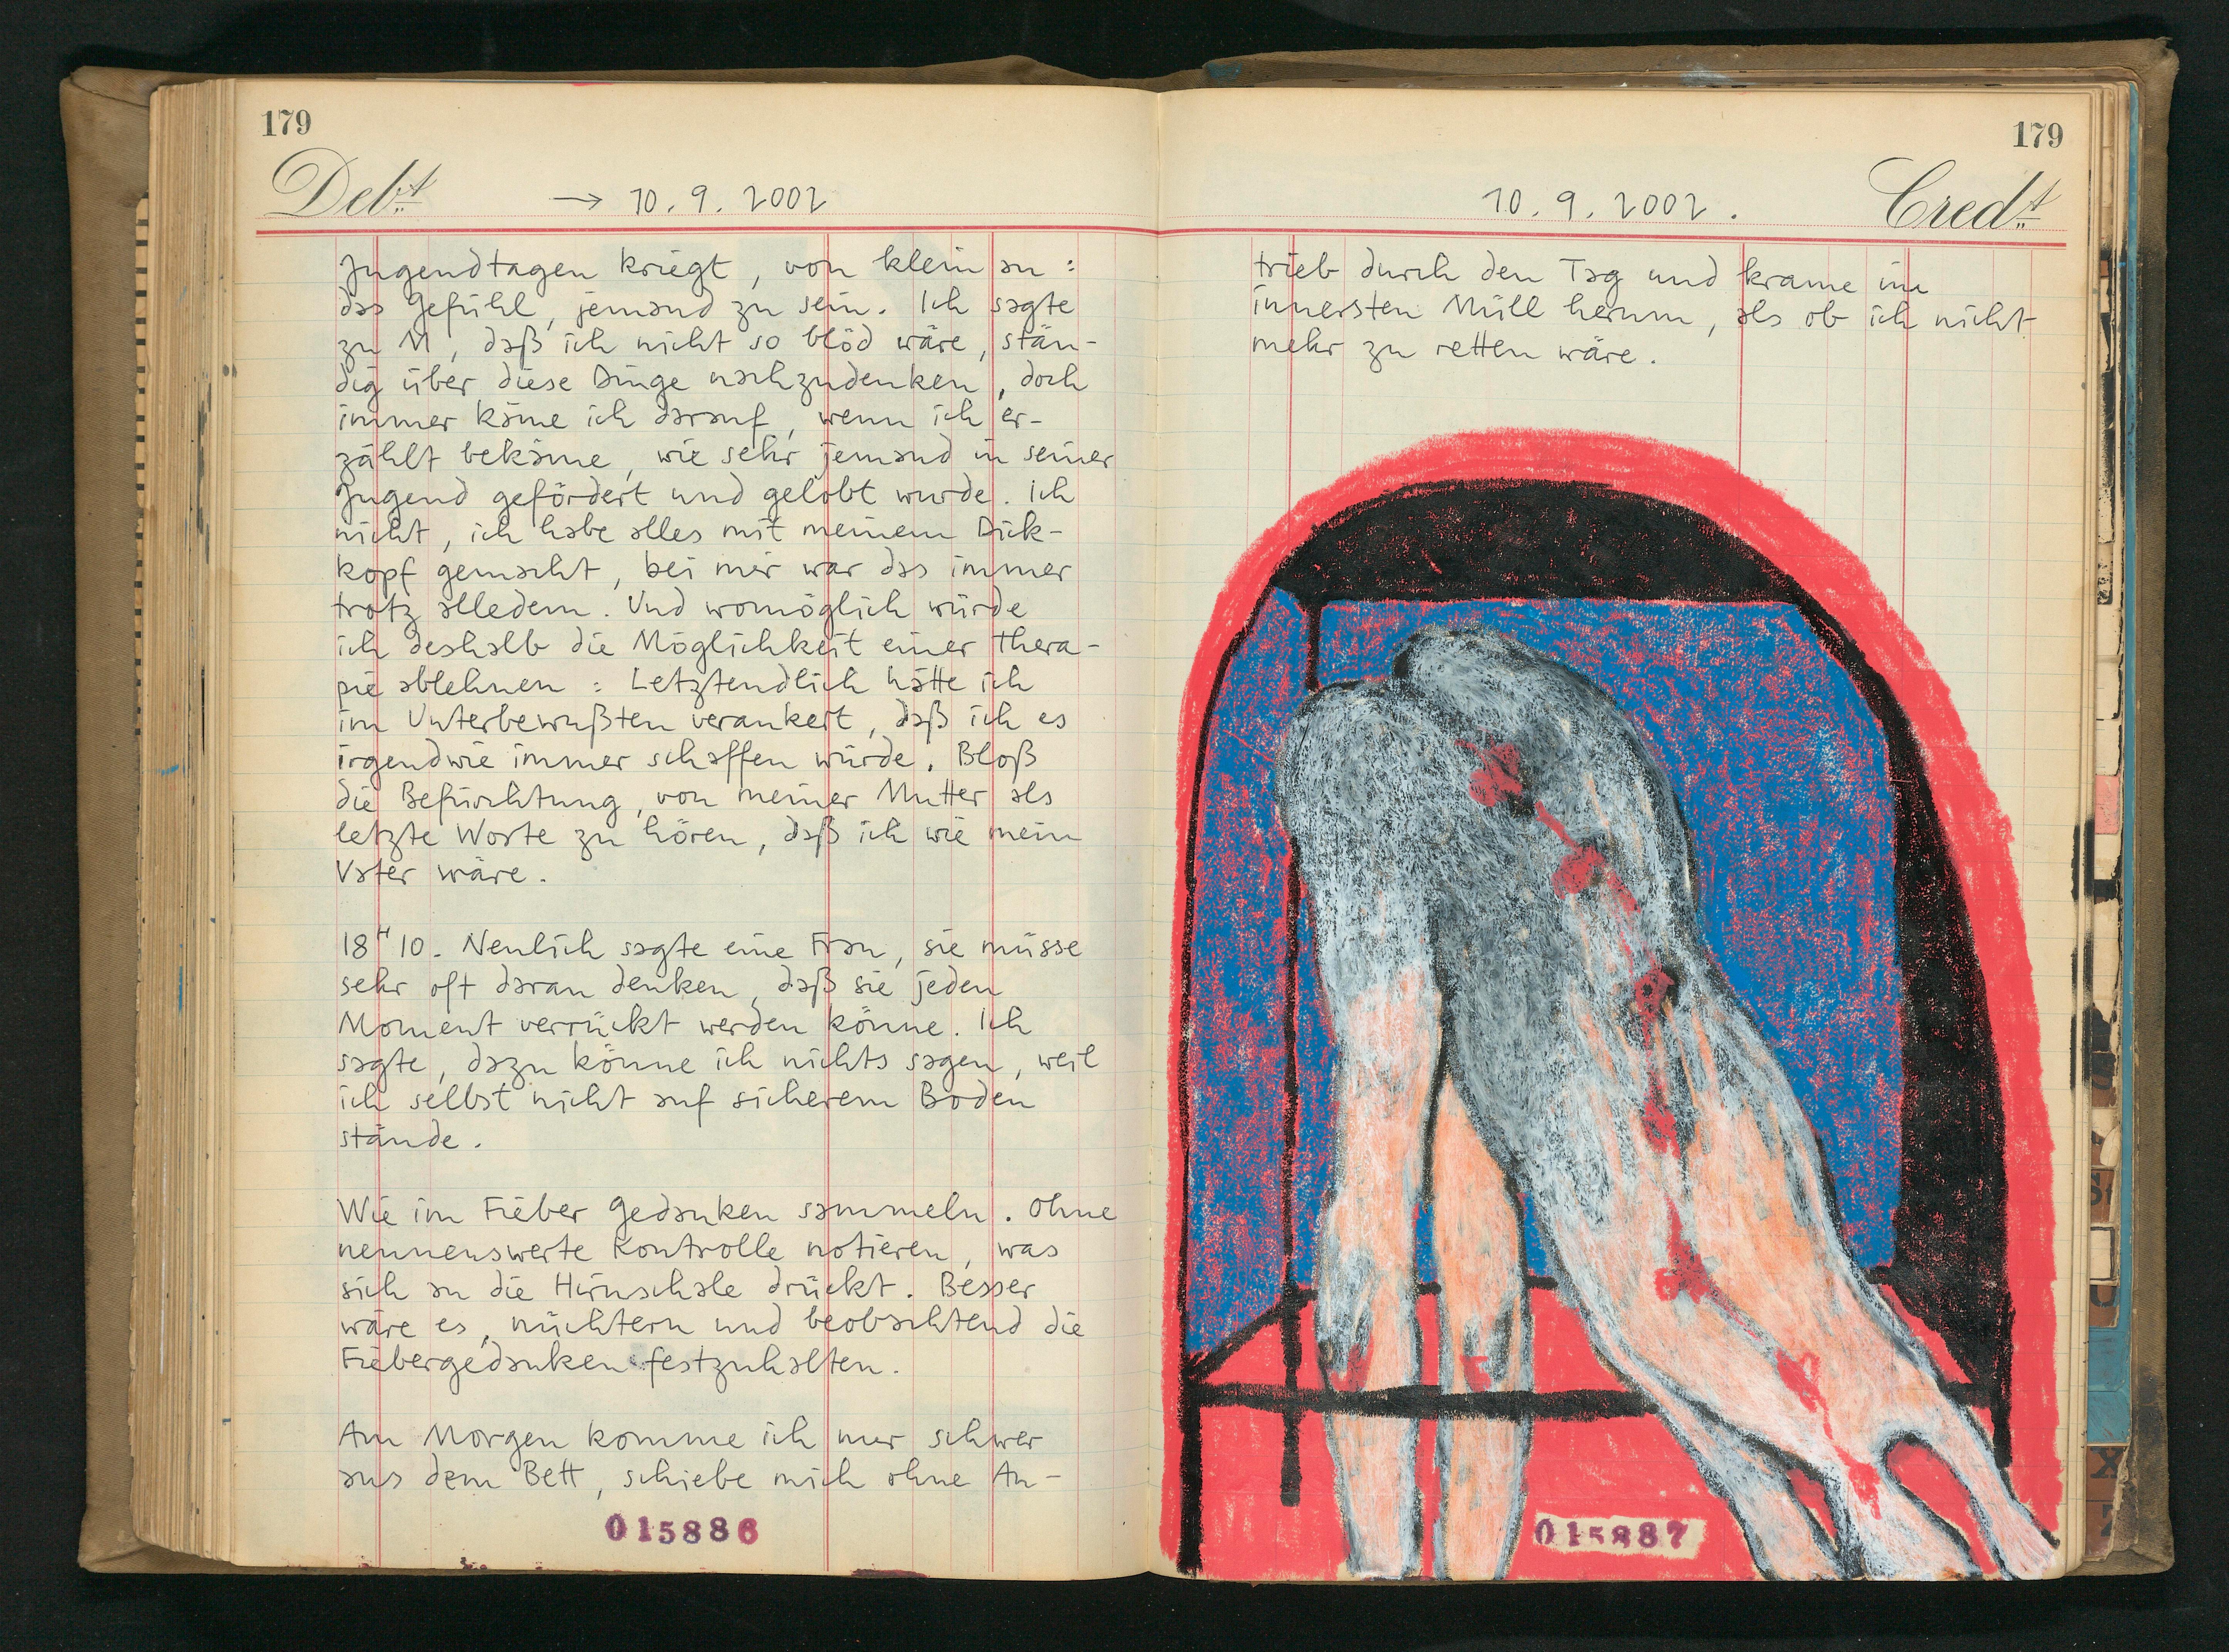 179
Debt
→ 10.9.2002
Jugendtagen kriegt, von klein an:
das Gefühl, jemand zu sein. Ich sagte
zu M, daß ich nicht so blöd wäre, stän-
dig über diese Dinge nachzudenken, doch
immer käme ich darauf, wenn ich er-
zählt bekäme, wie sehr jemand in seiner
Jugend gefördert und gelobt wurde. Ich
nicht, ich habe alles mit meinem Dick-
kopf gemacht, bei mir war das immer
trotz alledem. Und womöglich würde
ich deshalb die Möglichkeit einer Thera-
pie ablehnen: Letztendlich hätte ich
im Unterbewußten verankert, daß ich es
irgendwie immer schaffen würde. Bloß
die Befürchtung, von meiner Mutter als
letzte Worte zu hören, daß ich wie mein
Vater wäre.
18H10. Neulich sagte eine Frau, sie müsse
sehr oft daran denken, daß sie jeden
Moment verrückt werden könne. Ich
sagte, dazu könne ich nichts sagen, weil
ich selbst nicht auf sicherem Boden
stände.
Wie im Fieber Gedanken sammeln. Ohne
nennenswerte Kontrolle notieren, was
sich an die Hirnschale drückt. Besser
wäre es, nüchtern und beobachtend die
Fiebergedanken festzuhalten.
Am Morgen komme ich nur schwer
aus dem Bett, schiebe mich ohne An-
015886
179
10.9.2002.
Credt
trieb durch den Tag und krame im
innersten Müll herum, als ob ich nicht
mehr zu retten wäre.
015887